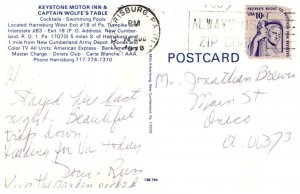 KEYSTONE MOTOR INN &
CAPTAIN WOLFE'S TABLE
Cocktails - Swimming Pools
Located Harrisburg West Exit #18 of Pa. Turnpike
Interstate #83 Exit 18 (P. O. New Cumber-
land, R. D. 1 Pa. 17070) 6 miles S. of Harrisburg
1 mile from New Cumberland Army Depot
Color TV All Units. American Express - Bank
- Master Charge - Diners Club - Carte Blanche
Phone Harrisburg 717-774-1310
PM
ALWAYS
ZIP
USA 10c
POSTCARD
Hi,
Stayed here last
night. Beautiful
trip down.
Heading for Va today
Russ
Mr. Jonathan
Main St
Oneco
Ct. 06373